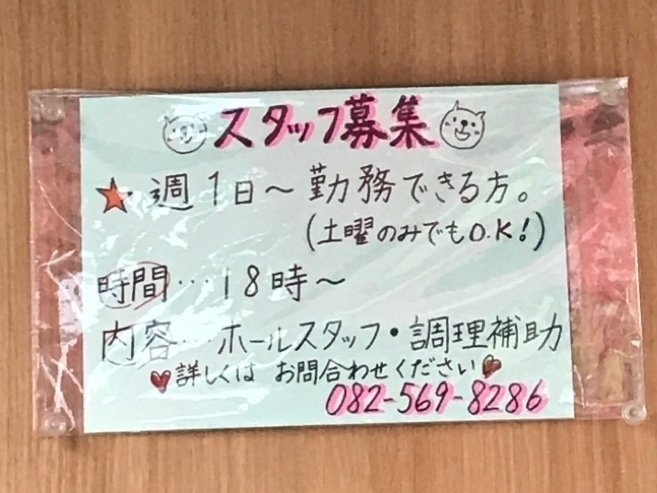 スタッフ募集
★・週1日～勤務できる方。
(土曜のみでもO.K!)
時間…18時～
内容…ホールスタッフ・調理補助
詳しくは お問合わせください
082-569-8286